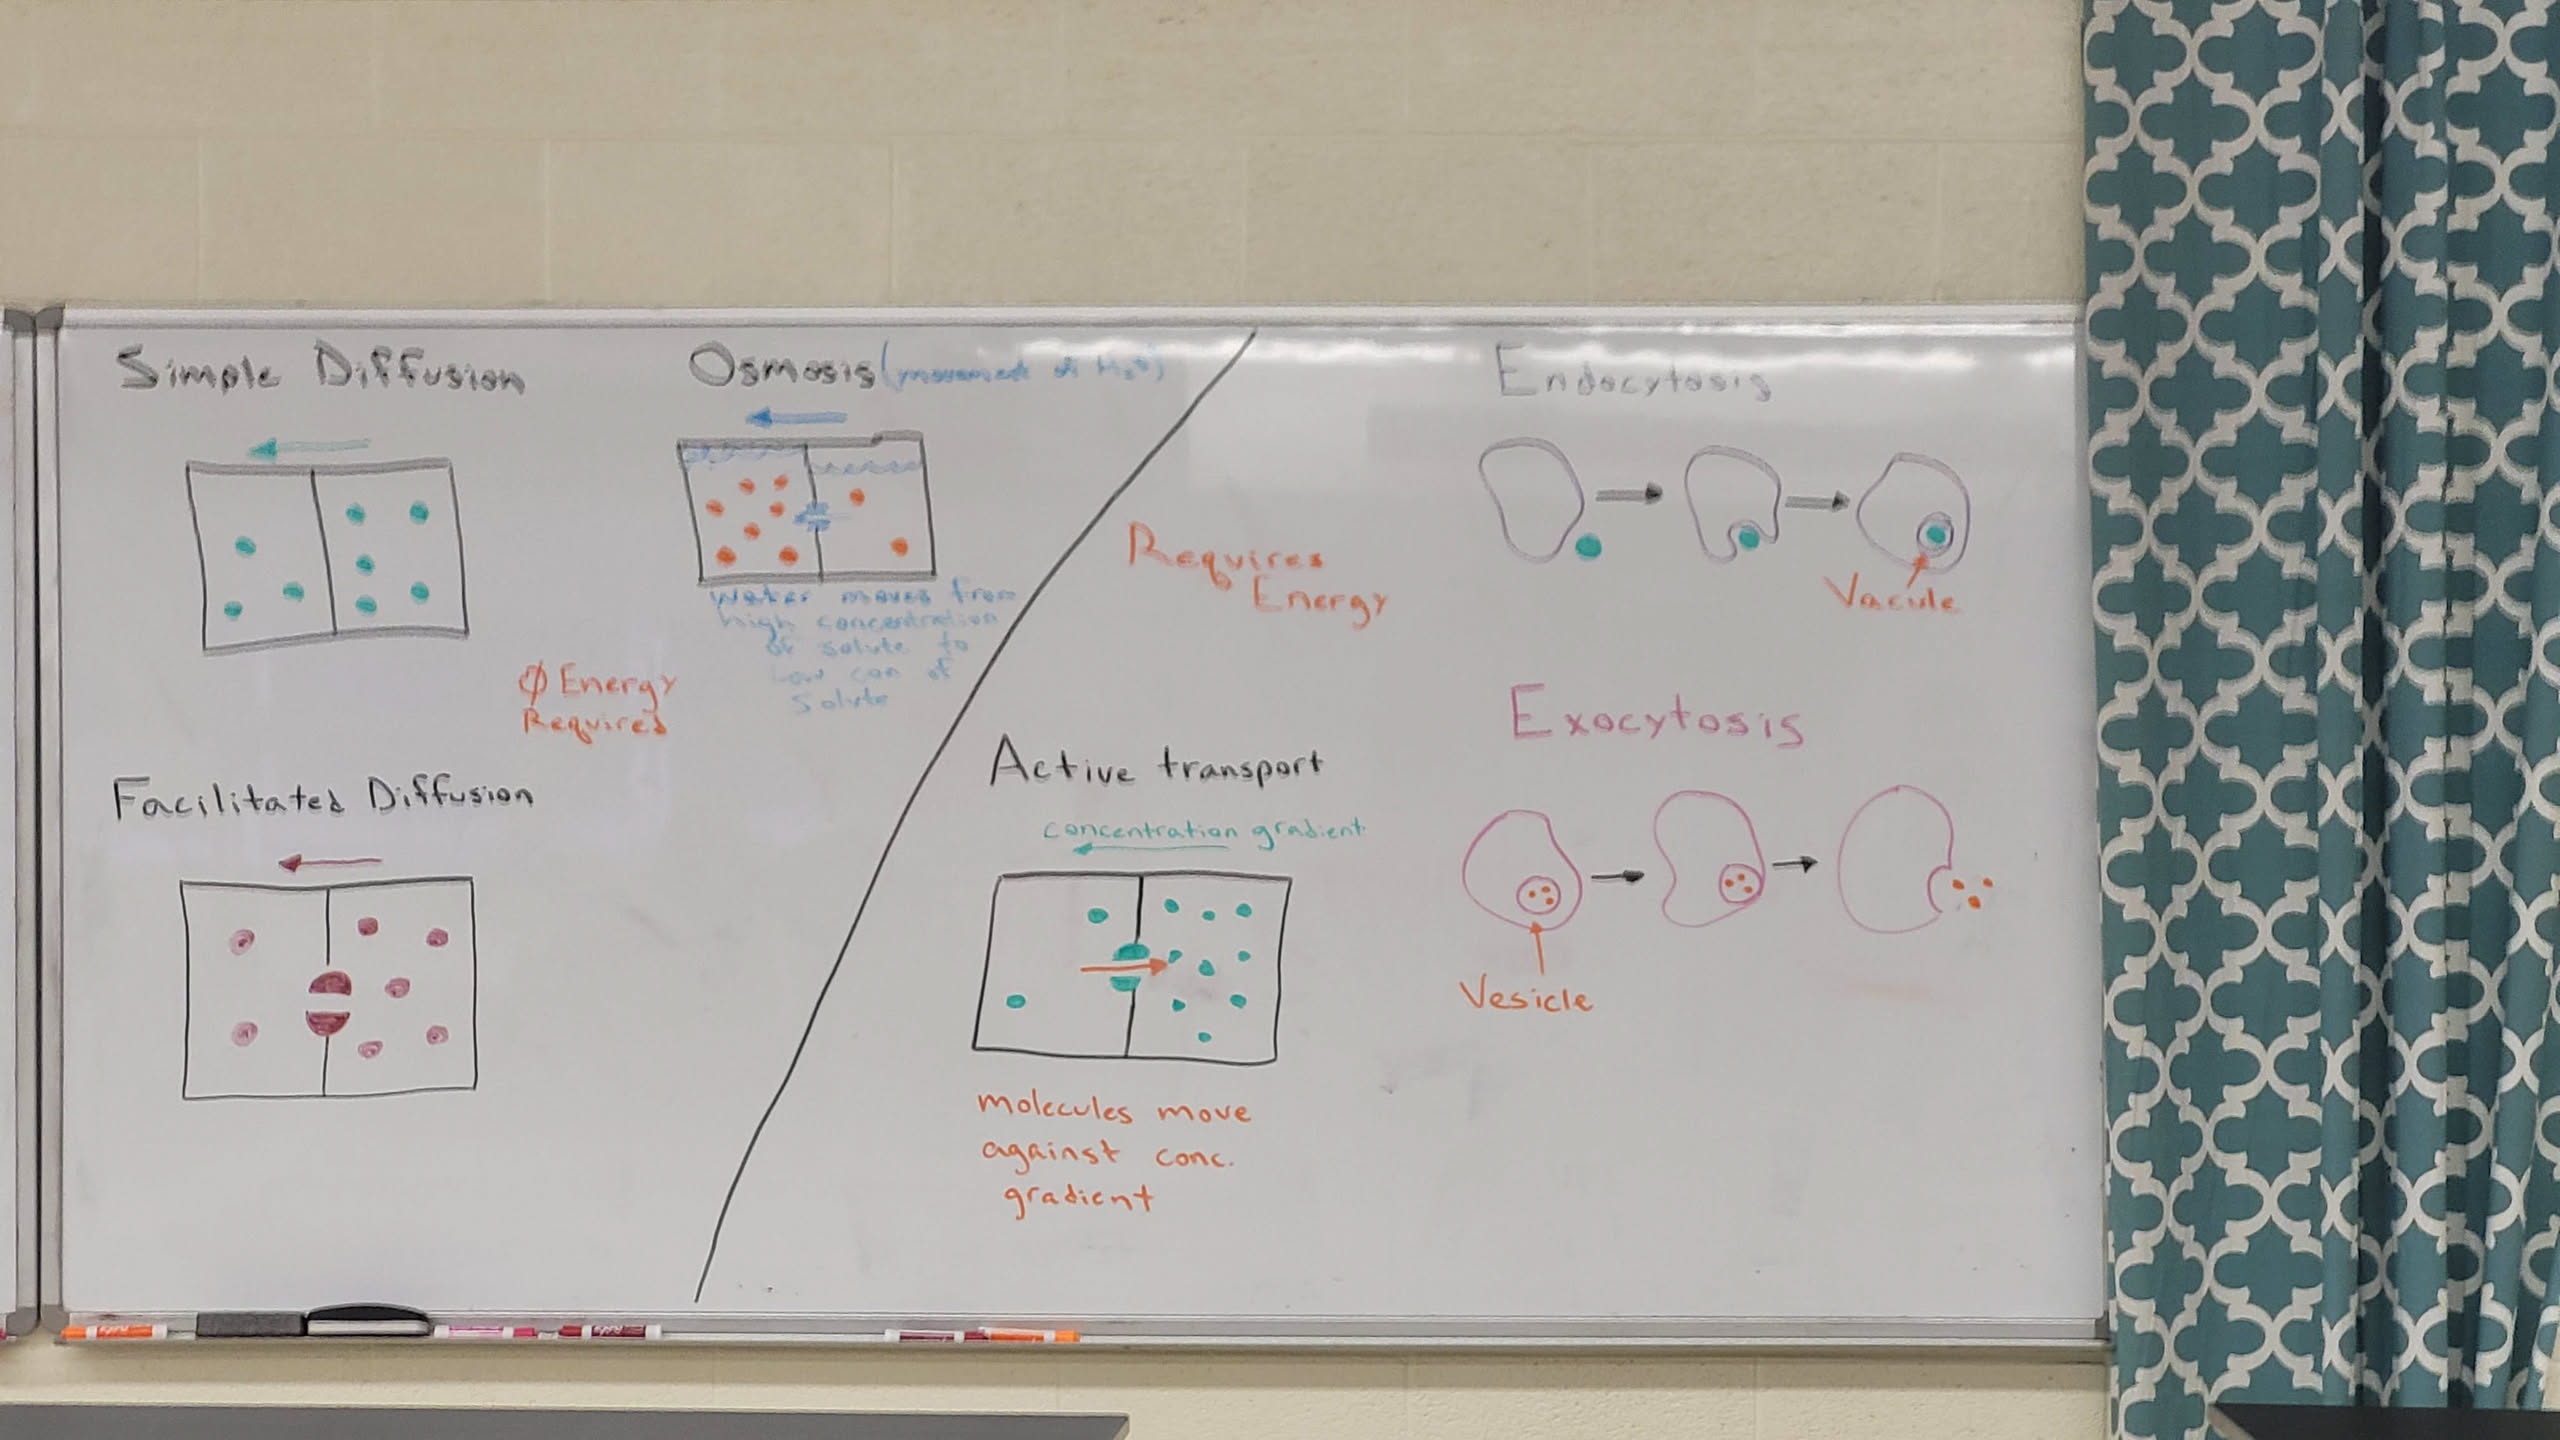 Simple Diffusion
Osmosis (movement of H₂O)
Water moves from
high concentration
of solute to
Low con of
Solute
∅ Energy
Required
Facilitated Diffusion
Requires
Energy
Active transport
concentration gradient
molecules move
against conc.
gradient
Endocytosis
Vacule
Exocytosis
Vesicle